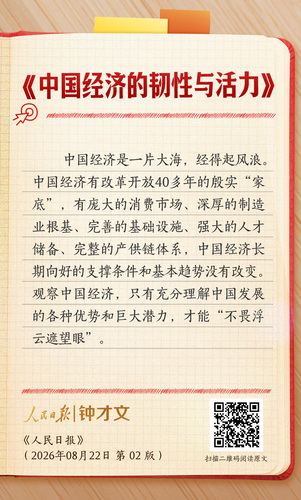 《中国经济的韧性与活力》
中国经济是一片大海，经得起风浪。
中国经济有改革开放40多年的殷实“家
底”，有庞大的消费市场、深厚的制造
业根基、完善的基础设施、强大的人才
储备、完整的产供链体系，中国经济长
期向好的支撑条件和基本趋势没有改变。
观察中国经济，只有充分理解中国发展
的各种优势和巨大潜力，才能“不畏浮
云遮望眼”。
人民日报|钟才文
《人民日报》
（2026年08月22日 第 02 版）
扫描二维码阅读原文